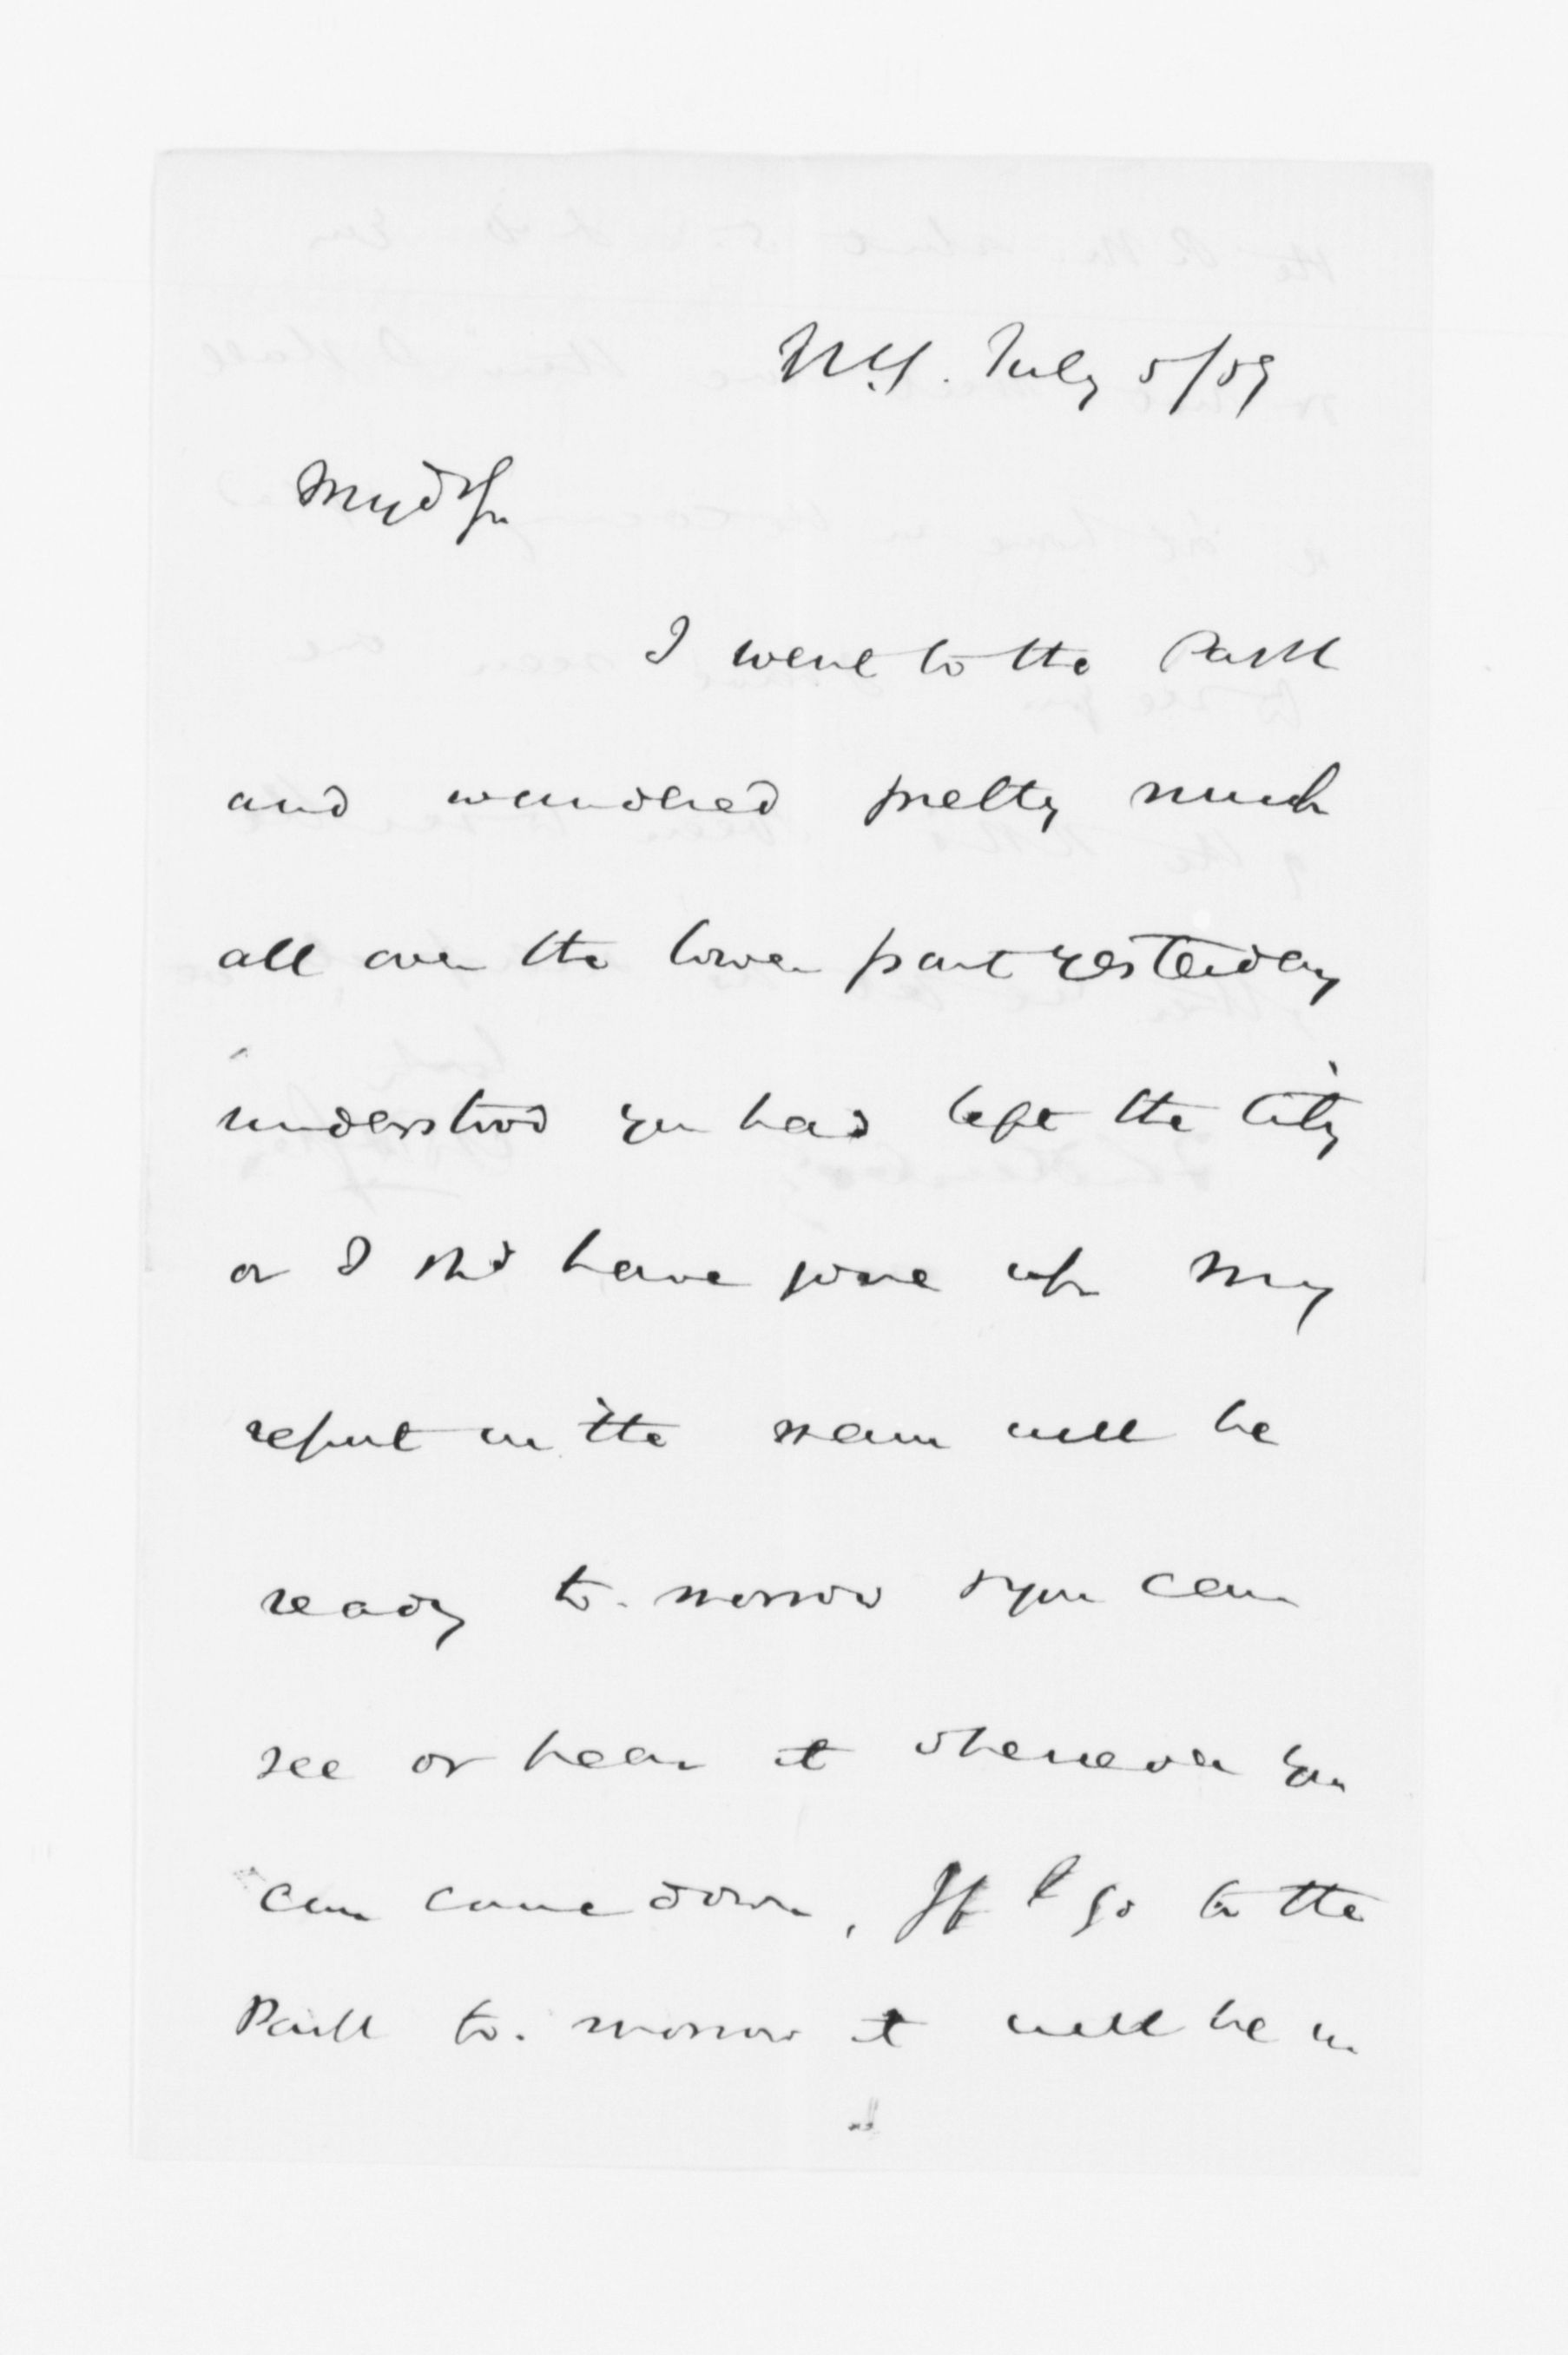 N.Y. July 5/59
My d Sir
I went to the Park
and wandered pretty much
all over the lower part yesterday
understood you had left the City
or I shd have gone up My
report on the  will be
ready to-morrow & you can
see or hear it whenever you
can come down, If I go to the
Park to-morrow it will be in